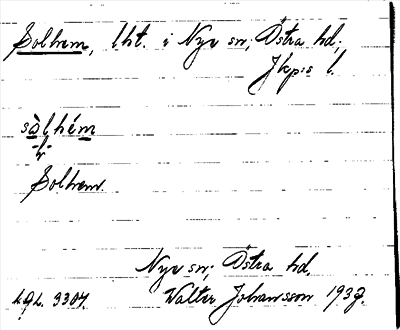 Solhem, lht. i Nye sn; Östra hd,
Jkp:s l.
sòlhém
-h-
Solhem.
Nye sn; Östra hd.
Walter Johansson 193